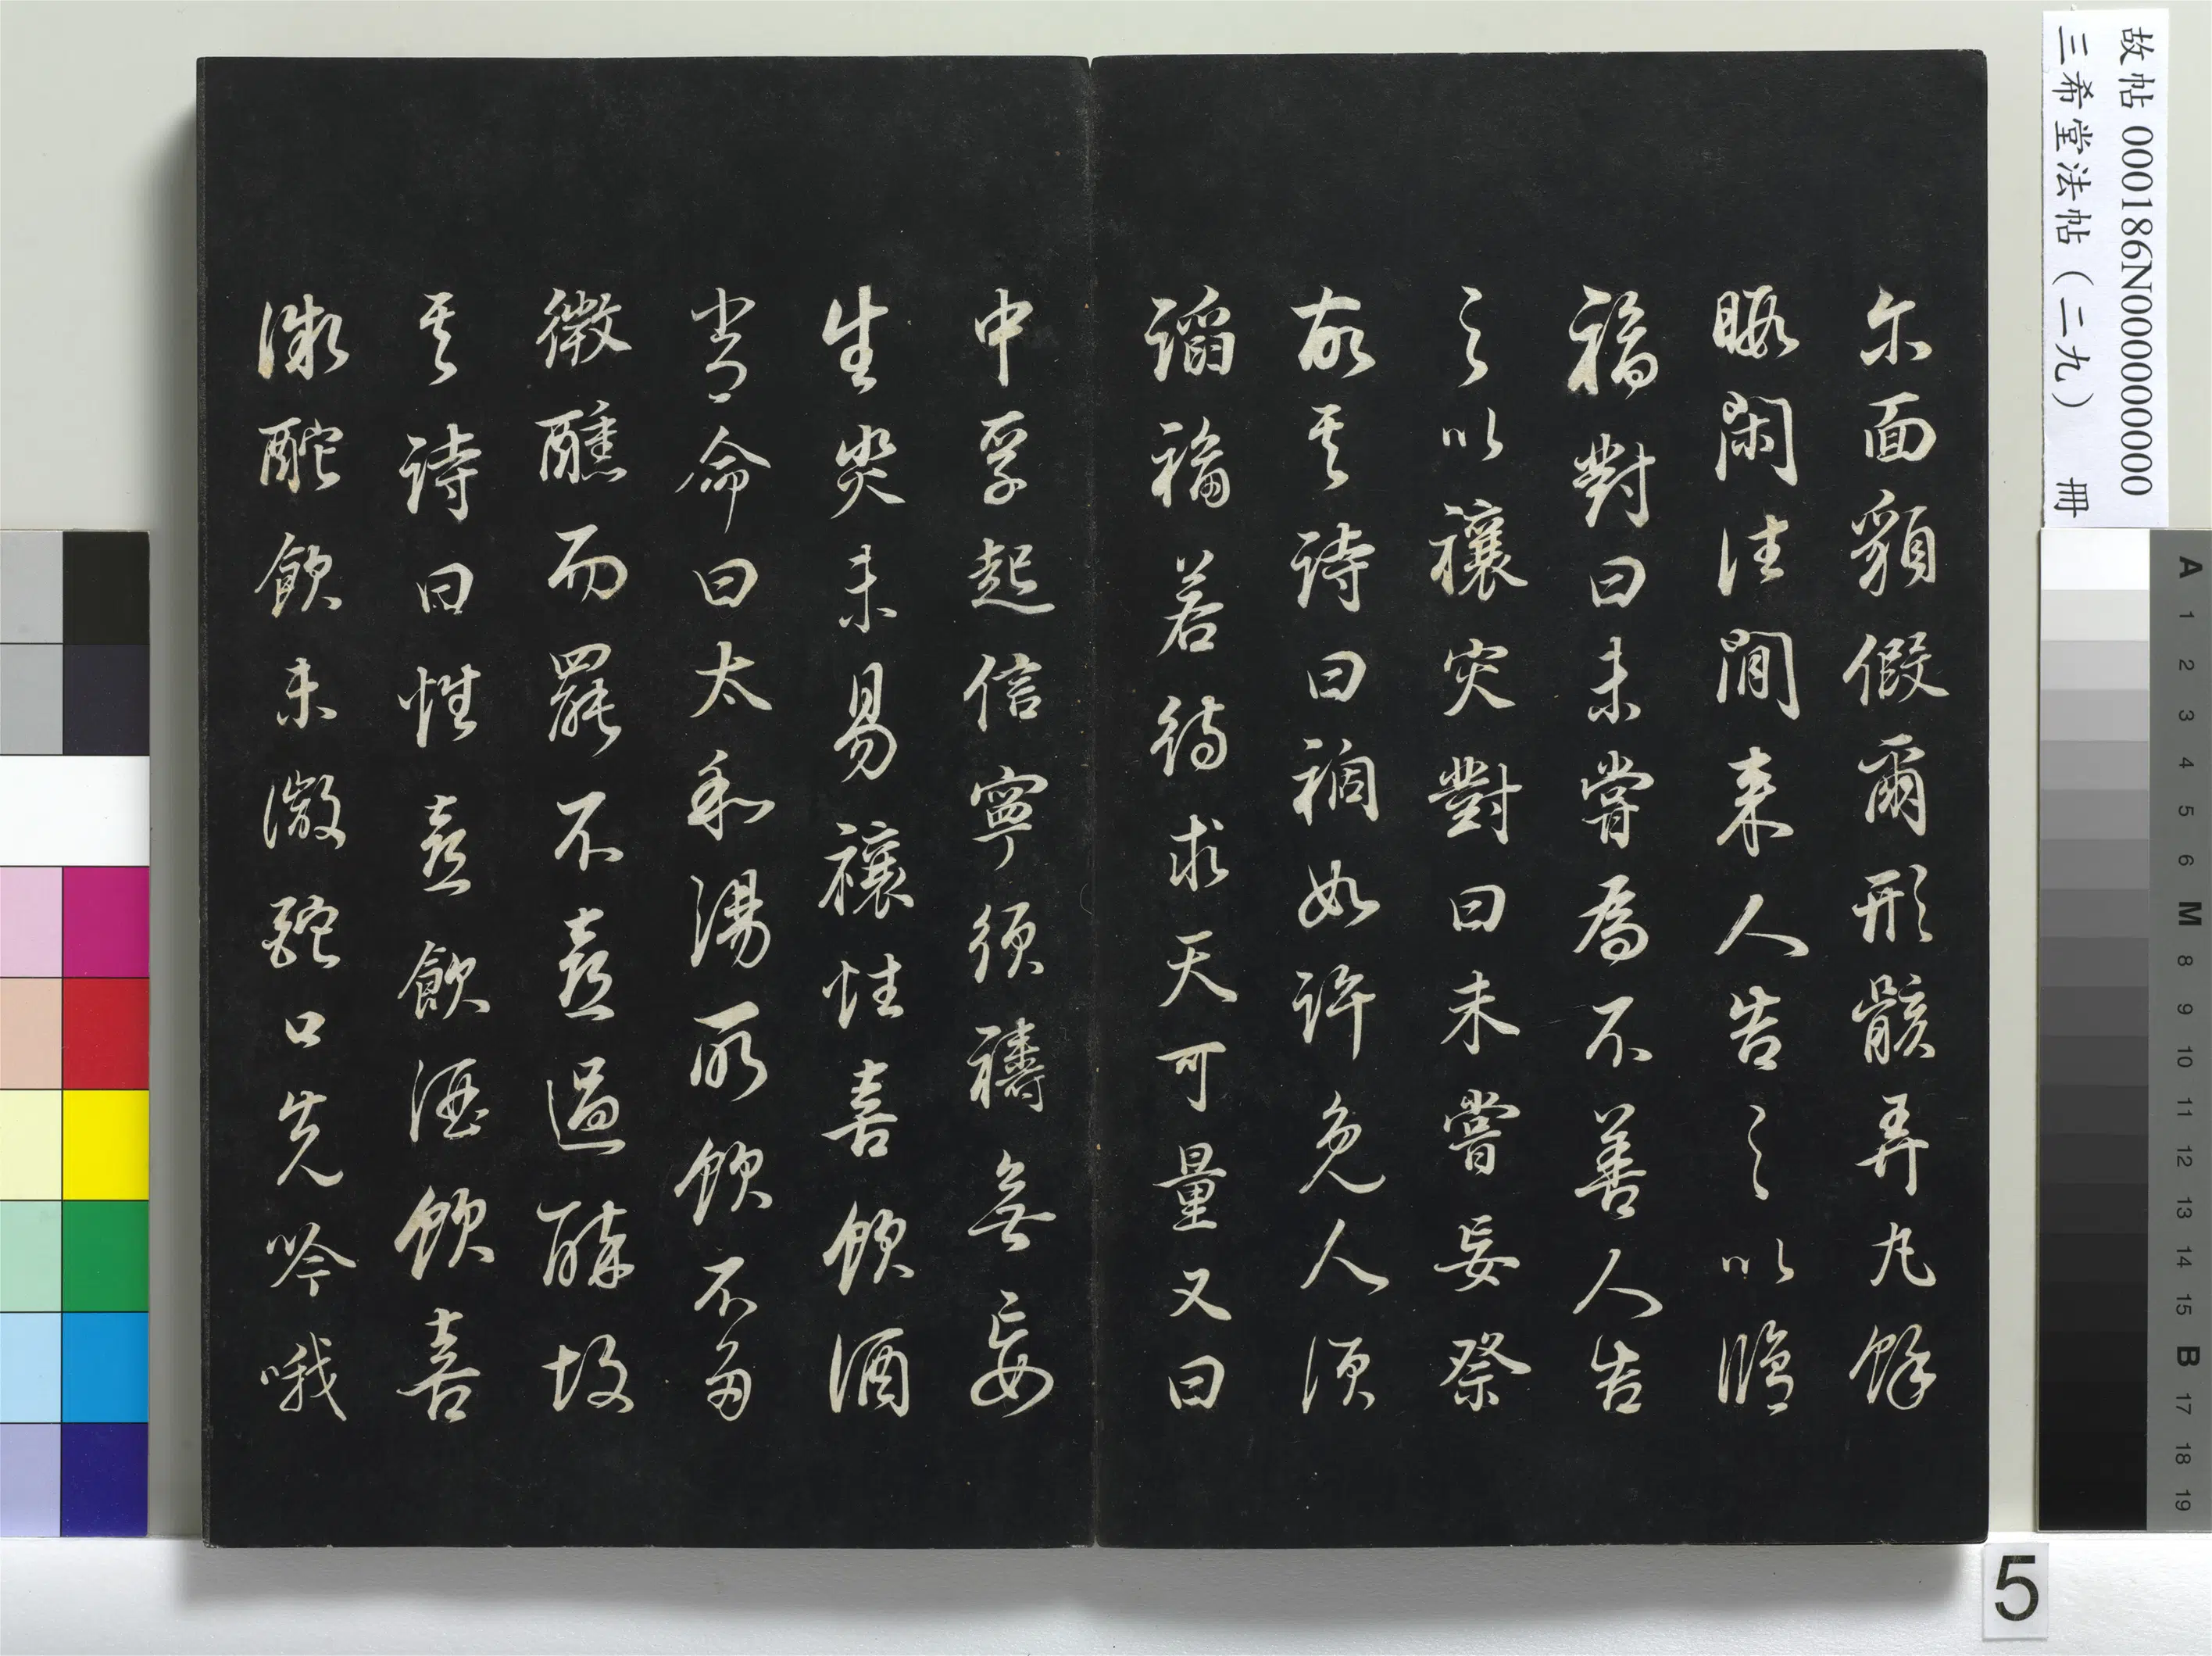 故帖 000186N000000000
三希堂法帖（二九） 冊
尔面貌假爾形骸弄丸餘
暇閑往閒来人告之以脩
福對曰未嘗為不善人告
之以禳灾對曰未嘗妄祭
故其詩曰禍如許免人須
諂福若待求天可量又曰
中孚起信寧須禱無妄
生災未易禳性喜飲酒
嘗命曰太和湯所飲不多
微醺而罷不喜過醉故
其詩曰性喜飲酒飲喜
微酡飲未微酡口先吟哦
A
1
2
3
4
5
6
M
8
9
10
11
12
13
14
15
B
17
18
19
5